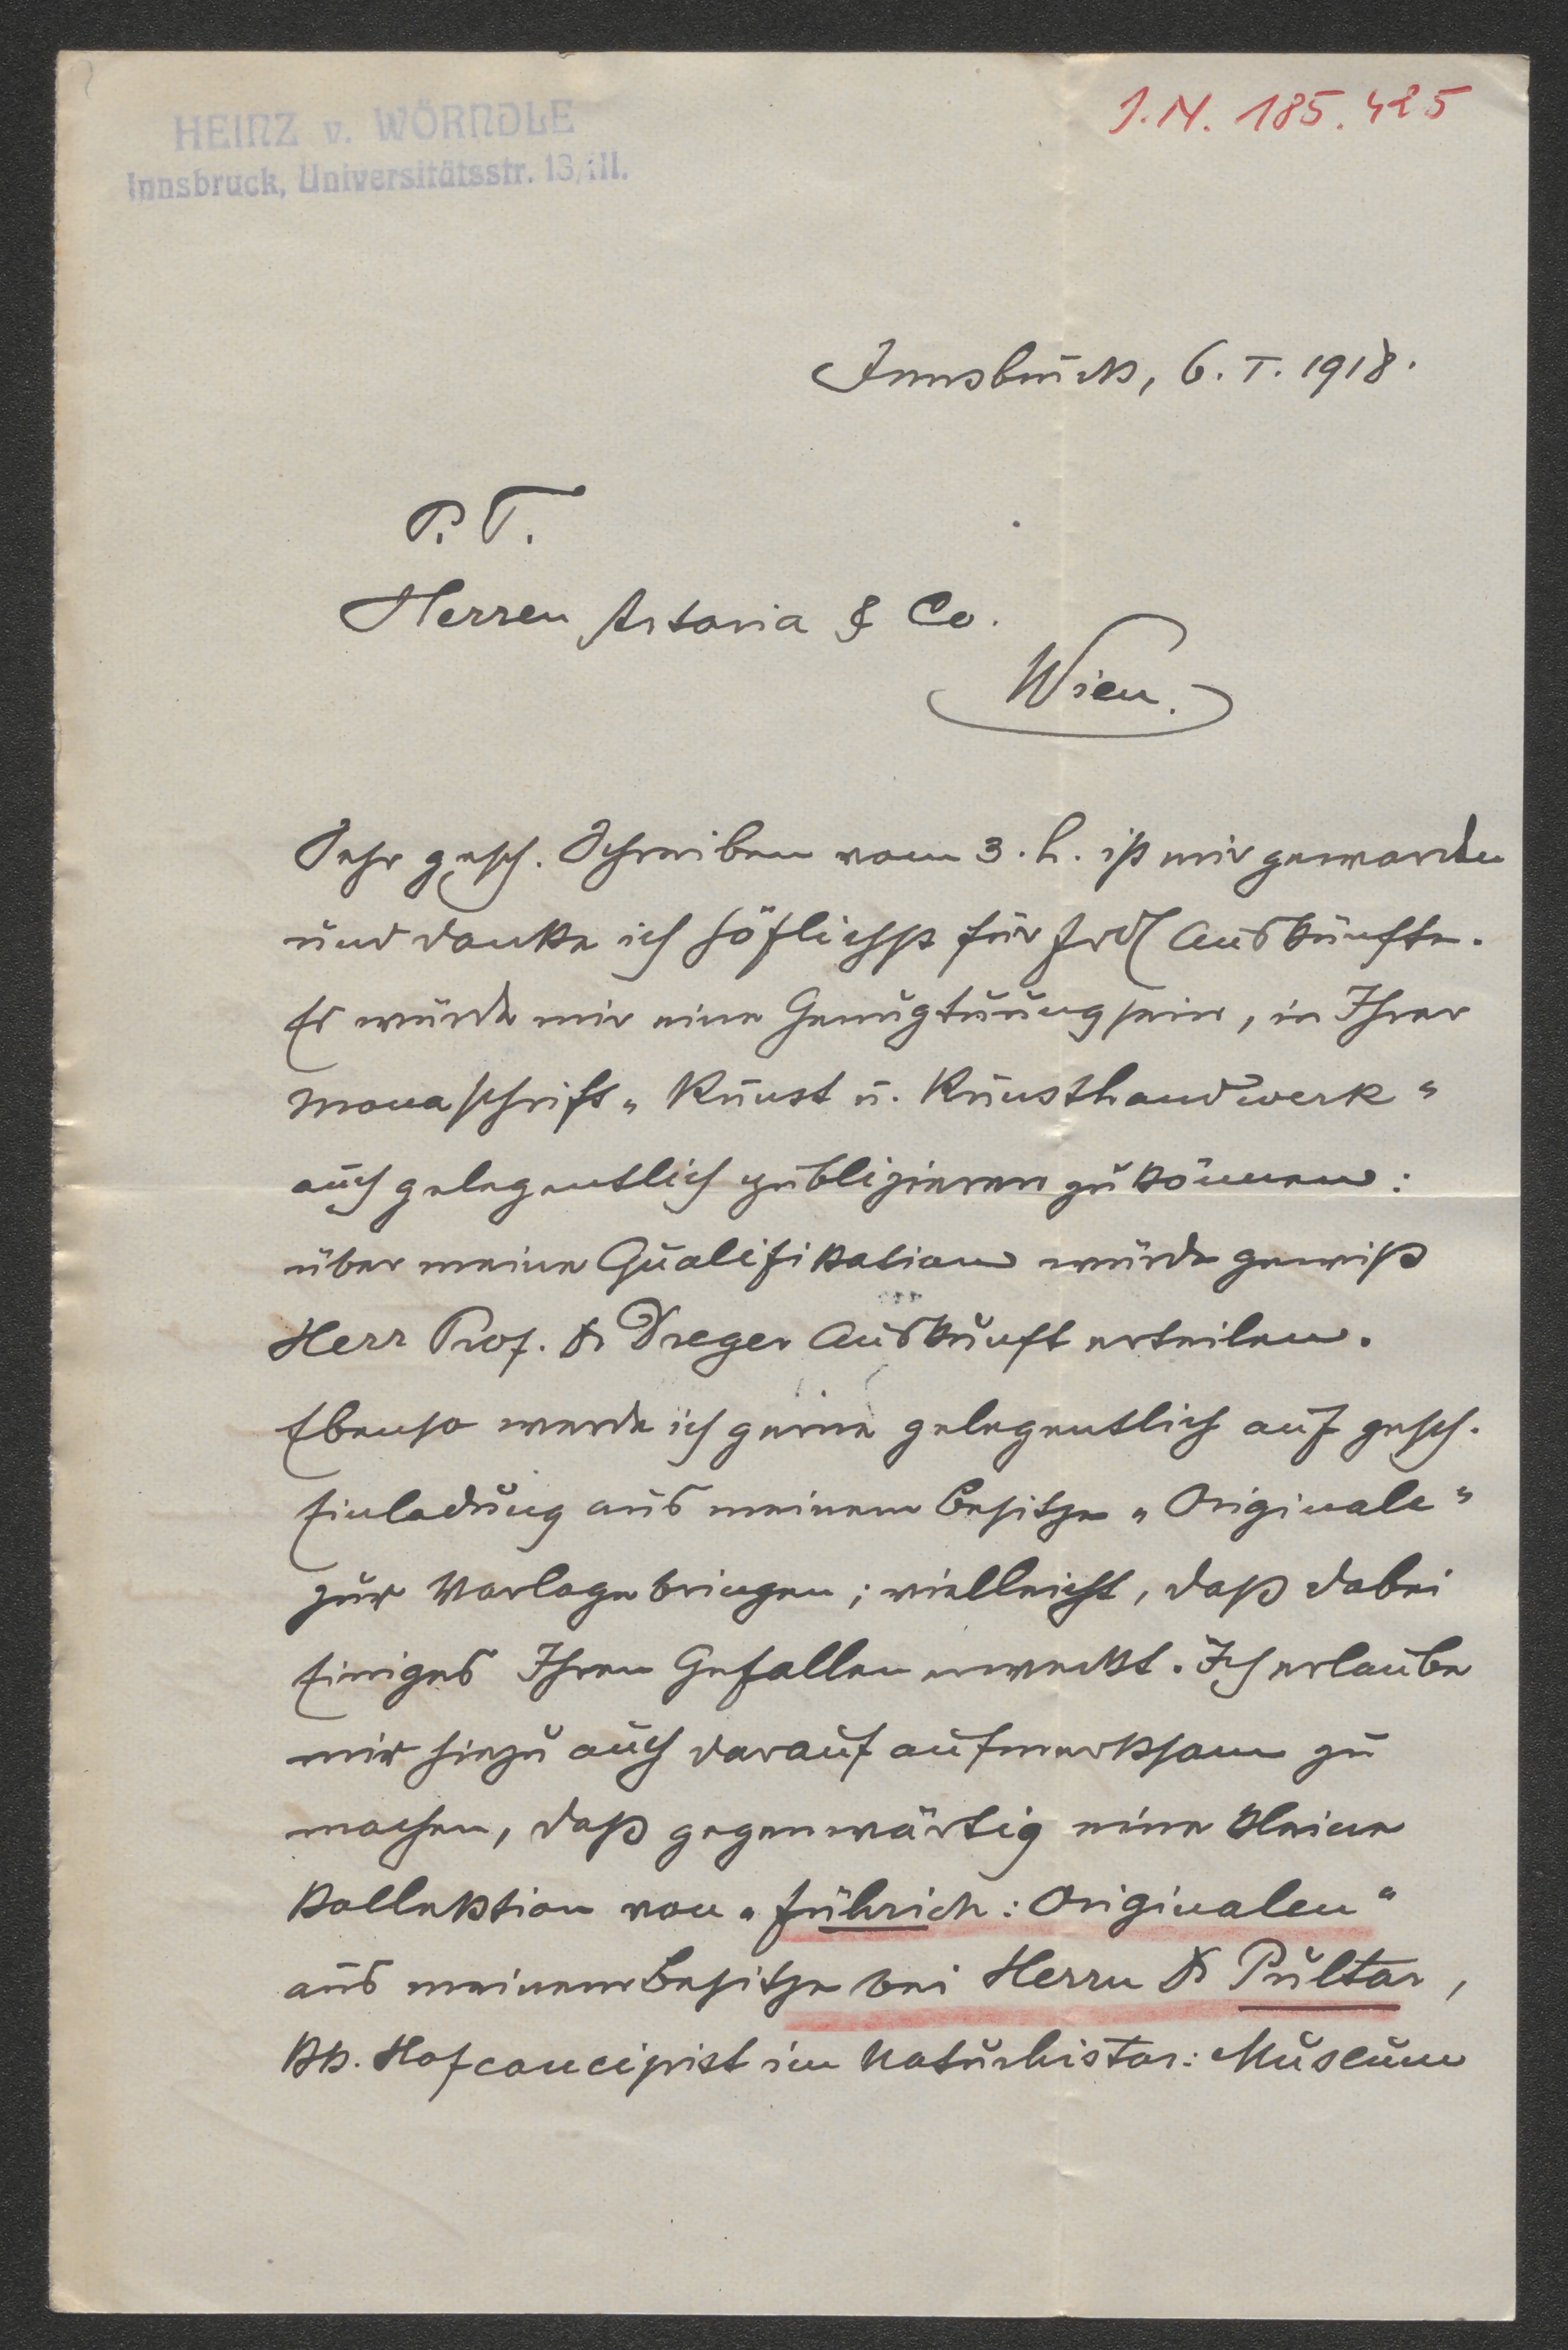 HEINZ v. WÖRNDLE
Innsbruck, Universitätsstr. 13/III.
J.N. 185.425
Innsbruck, 6. I. 1918.
P. T.
Herren Artaria & Co.
Wien.
Sehr gesch. Schreiben vom 3. h. ist mir geworden
und danke ich höflichst für Auskünfte.
Es würde mir eine Genugtuung sein, in Ihrer
Monaschrift „Kunst u. Kunsthandwerk“
auch gelegentlich publizieren zu können:
über meine Qualifikation würde gewiß
Herr Prof. Dr Dreger Auskunft erteilen.
Ebenso werde ich gerne gelegentlich auf gesch.
Einladung aus meinem Besitze „Originale“
zur Vorlage bringen; vielleicht, daß dabei
Einiges Ihren Gefallen erweckt. Ich erlaube
mir hiezu auch darauf aufmerksam zu
machen, daß gegenwärtig eine kleine
Kollektion von „Führich: Originalen“
aus meinem Besitze bei Herrn Dr Pultar,
kk. Hofconcipist im Naturhistor: Museum